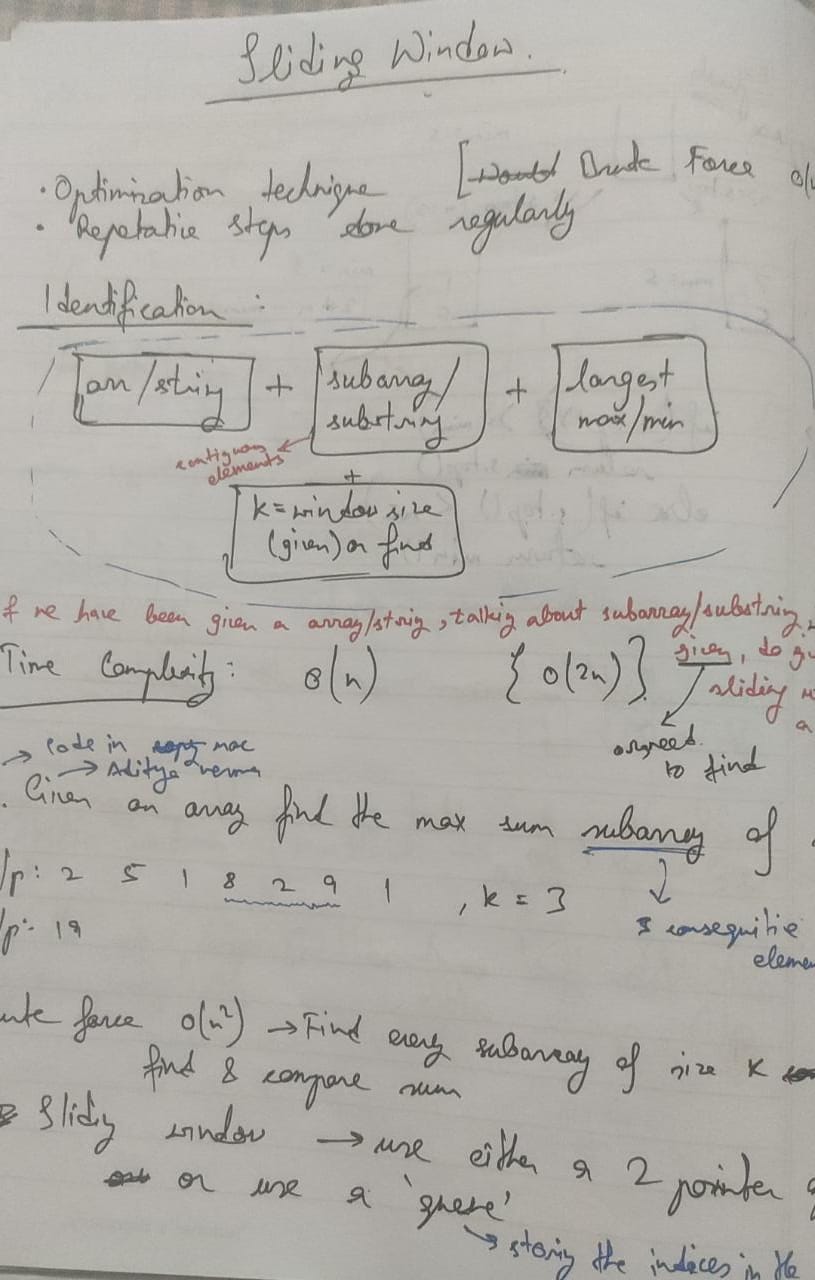 Sliding Window.
• Optimization technique [Brute Force
• Repetative steps done regularly
Identification :
arr/string + subarray/ + largest
substring max/min
contiguous
elements
+
k = window size
(given) or find
If we have been given a array/string, talking about subarray/substring,
Time Complexity: O(n) {O(2n)} given, do
sliding
a
asked
to find
→ Code in mac
→ Aditya Verma
. Given an array find the max sum subarray of
I/p: 2 5 1 8 2 9 1 , k = 3
/p:- 19
3 consequitie
eleme
ute force O(n²) → Find every subarray of size K
find & compare sum
Slidig window → use either a 2 pointer
or use a 'queue'
→ storing the indices in the